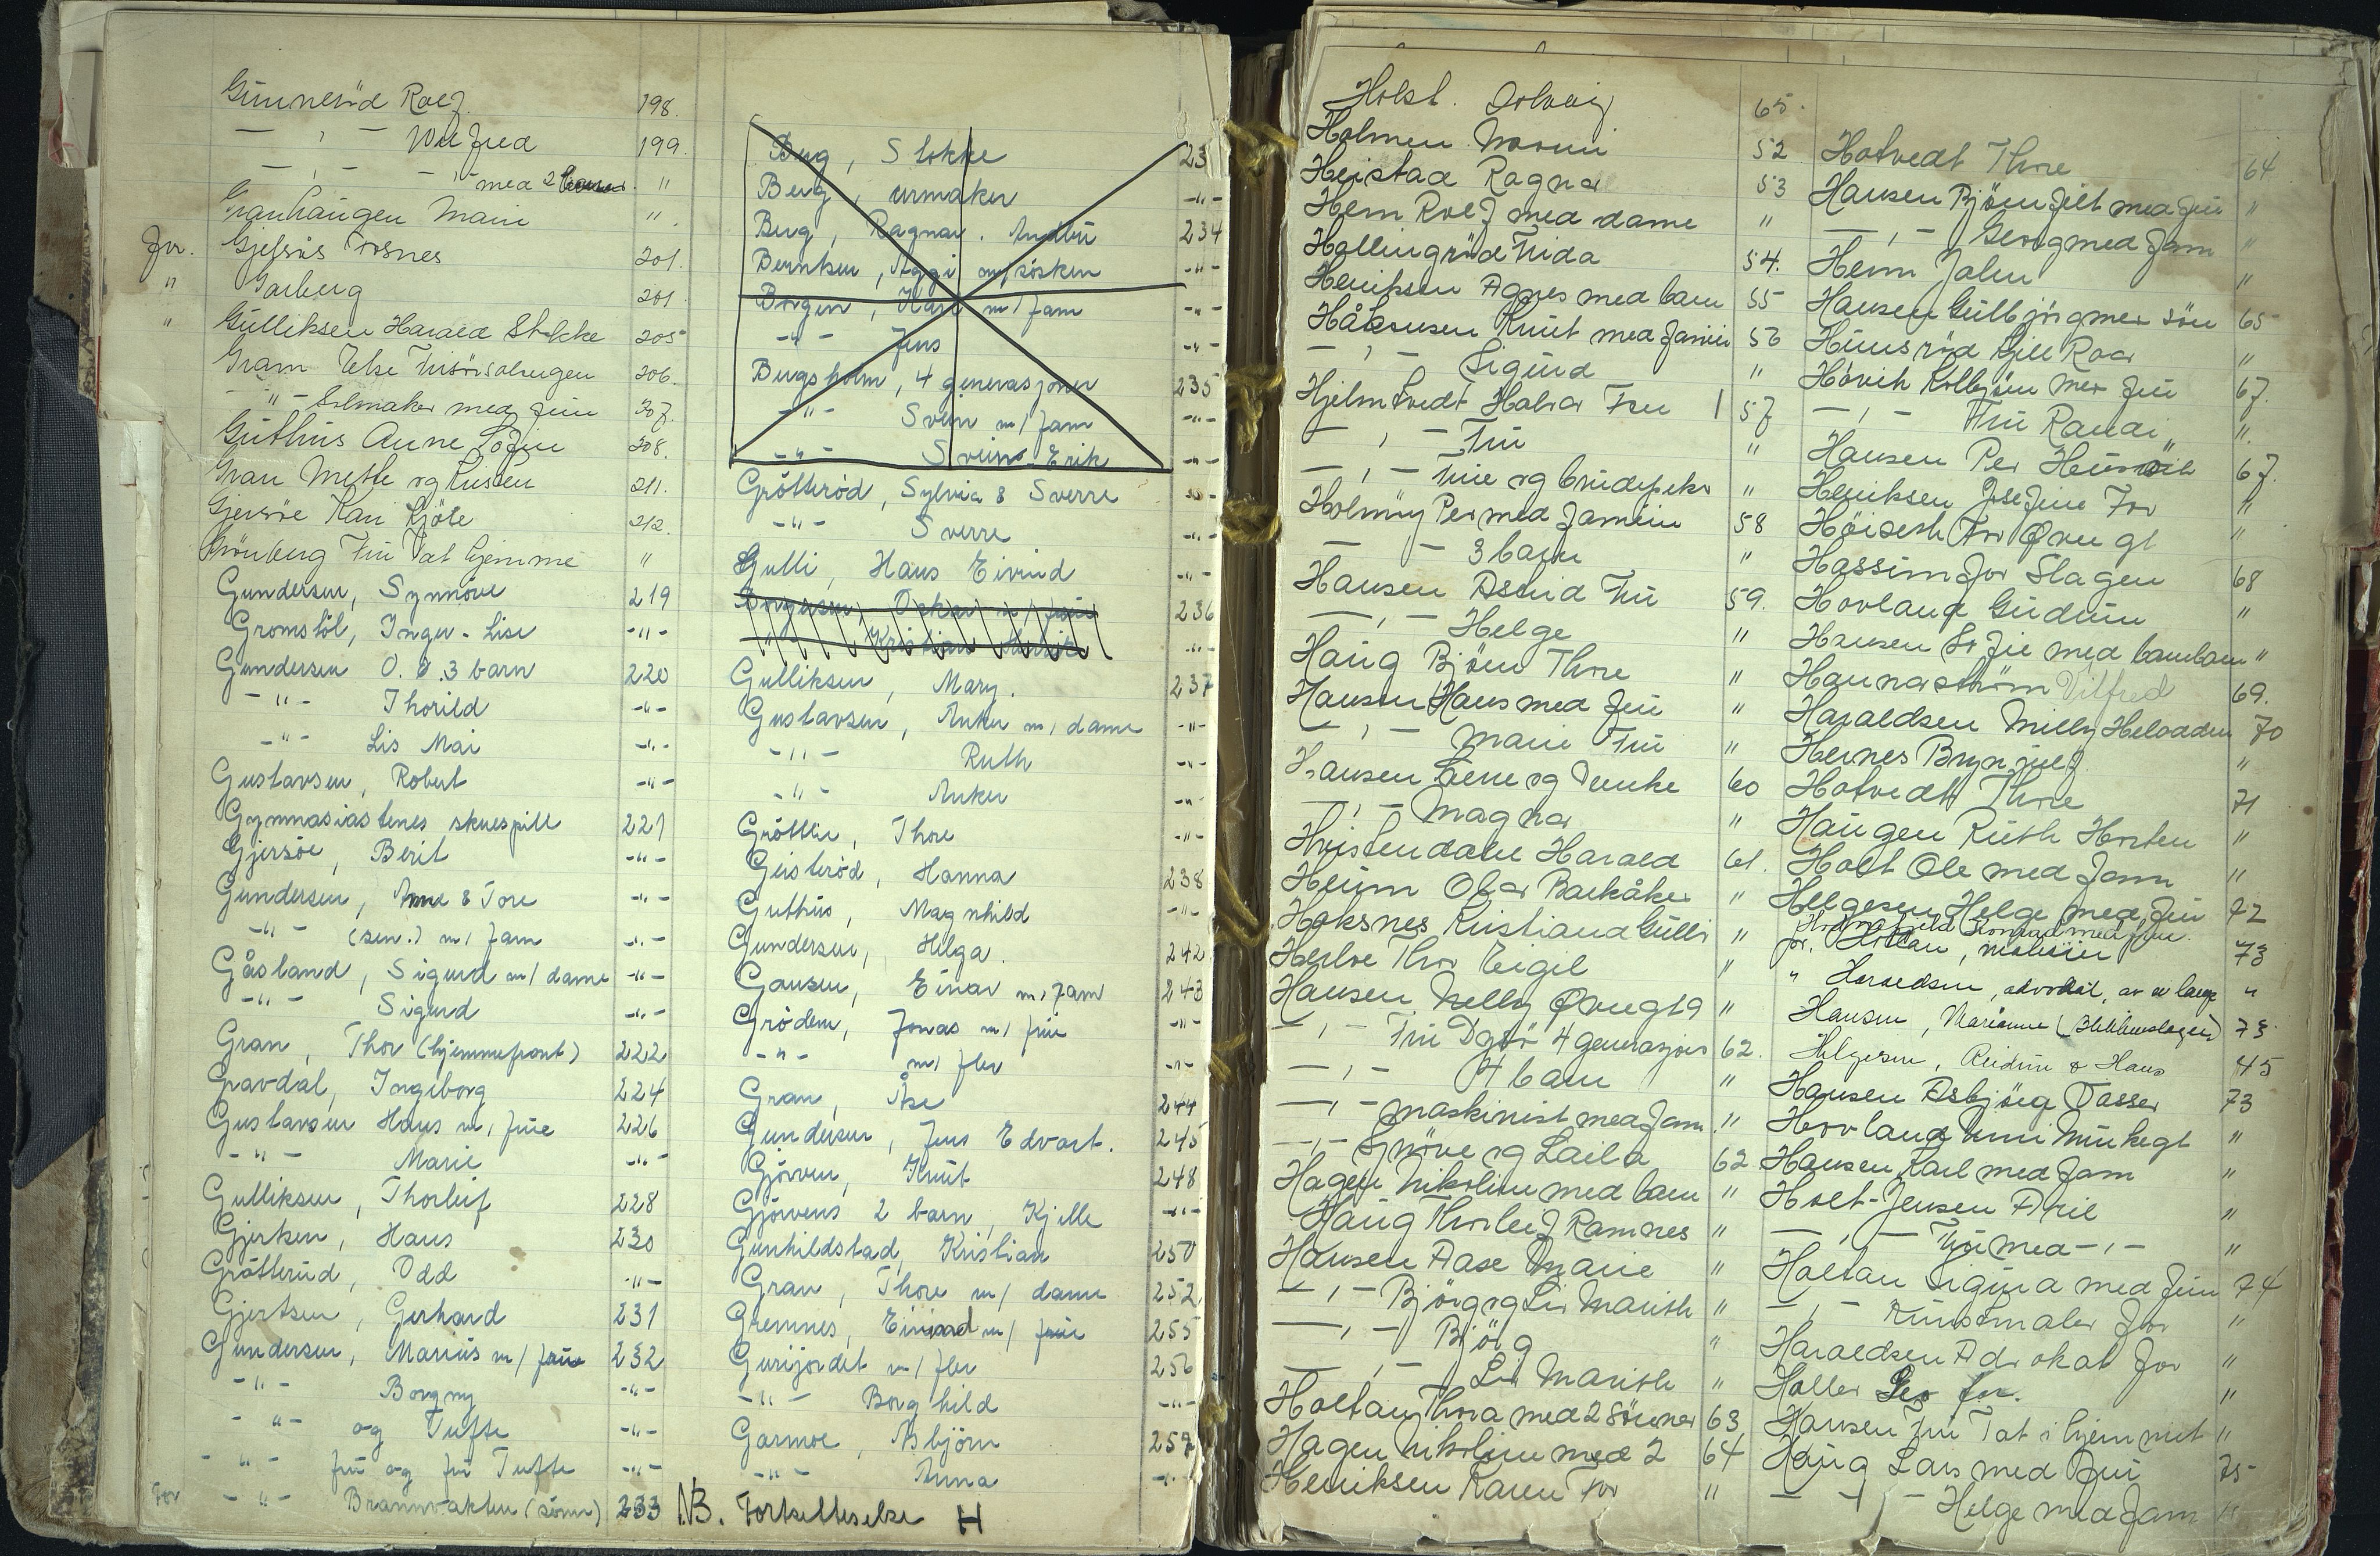 Gunnerød Rolf 198.
— , — Wilfred 199.
— , — , — med 2 "
Granhaugen Marie "
for. Gjelsås Fosnes 201.
" Garberg 201.
" Gulliksen Harald Stokke 205
Gram Else 206.
— " — Sølmaker med frue 207.
Guthus Anne Sofie 208.
Gran Mette og Kristen 211.
Gjersøe Kari Kjöle 212.
Grönberg Fru Tat hjemme "
Gundersen, Synnöve 219
Gromstöl, Inger-Lise -"-
Gundersen O. E. 3 barn 220
-"- Thorild -"-
-"- Lis Mai -"-
Gustavsen, Robert -"-
Gymnasiastenes skuespill 221
Gjersöe, Berit -"-
Gundersen, Anne & Tore -"-
-"- (sen.) m/ fam -"-
Gåsland, Sigurd m/ dame -"-
-"- Sigurd -"-
Gran, Thor (hjemmefront) 222
Gravdal, Ingeborg 224
Gustavsen Hans m/ frue 226
-"- Marie -"-
Gulliksen, Thorleif 228
Gjertsen, Hans 230
Gröttrud, Odd -"-
Gjertsen, Gerhard 231
Gundersen, Marius m/ frue 232
-"- Borgny -"-
-"- og Tufte -"-
-"- fru og fru Tufte -"-
For -"- Brannvakten (sönn) 233
Berg, Stokke 23
Berg, urmaker -"-
Berg, Ragnar. Andbu 234
Berntsen, Aggi m/ sösken -"-
Borgen, Kåre m/ fam -"-
-"- Jens -"-
Bergsholm, 4 generasjoner 235
-"- Svein m/ fam -"-
-"- Svein-Erik -"-
Grötteröd, Sylvia & Sverre -"-
-"- Sverre -"-
Gulli, Hans Eivind -"-
Borgersen, Oskar m/ frue 236
-"- Kristian -"-
Gulliksen, Mary. 237
Gustavsen, Anker m/ dame -"-
-"- Ruth -"-
-"- Anker -"-
Gröttlie, Thore -"-
Geisteröd, Hanna 238
Guthus, Magnhild -"-
Gundersen, Helga. 242
Gausen, Einar m/ fam 243
Grödem, Jonas m/ frue -"-
-"- m/ fler -"-
Gran, Åse 244
Gundersen, Jens Edvart. 245
Gjörven, Knut 248
Gjörvens 2 barn, Kjelle -"-
Gunhildstad, Kristian 250
Gran, Thore m/ dame 252
Gremnes, Einard m/ frue 255
Gurijordet m/ fler 256
-"- Borghild -"-
Garmoe, Asbjörn 257
-"- Anna -"-
NB. Fortsettelse H
Holst. Solveig 65.
Holmen Mosuni 52
Heistad Ragnar 53
Hem Rolf med dame "
Hellingröd Frida 54.
Henriksen Agnes med barn 55
Håkonsen Knut med familie 56
— , — Sigurd "
Hjelmtvedt Halvor Fru 57
— , — Fru "
— , — Frue og brudepike "
Holmöy Per med familie 58
— — 3 barn "
Hansen Astrid Fru 59.
— , — Helge "
Haug Björn Thore "
Hansen Hans med fru "
— , — Marie Fru "
Hansen Lene og Wenke 60
— , — Magnar "
Hvistendahl Harald 61.
Heum Olav Barkåker "
Haksnes Kristiane Gulli "
Herloe Thor Eigil "
Hansen Nelly Övregt 9 "
— , — Fru Dgsö 4 generasjoner 62.
— , — 4 barn "
— , — maskinist med fam. "
— , — Synöve og Laila 62
Hagen Nikoline med barn "
Haug Thorleif Ramnes "
Hansen Aase Marie "
— , — Björg og Liv Marith "
— , — Björg "
— , — Liv Marith "
Holtan Thora med 2 sönner 63
Hagen Nikoline med 2 64
Henriksen Karen For "
Hotvedt Thore 64
Hansen Björn felt med fru "
— , — Georg med fam "
Hem John "
Hansen Gulbjörg med sön 65
Hunsröd Kjell Roar "
Hövik Kolbjörn med fru 67.
— , — Fru Randi ".
Hansen Per 67.
Henriksen Josefine For "
Höiseth For Övre gt "
Hassum for Slagen 68
Hovland Gudrun "
Hansen Sofie med barnbarn "
Hannaström Vilfred 69.
Haraldsen Milly Helsadden 70
Hernes Brynjulf "
Hotvedt Thore 71
Haugen Ruth Horten "
Holt Ole med fam "
Helgesen Helge med fru 72
Konrad med fru.
for. Holtan, malerier 73
" Haraldsen, advokat, av "
Hansen, Marianne (Blikkenslager) 73
Helgesen, Reidun & Hans 45
Hansen Asbjörg Tasser 73
Hovland Unni Munkegt "
Hansen Karl med fam "
Holt-Jensen Aril "
— , — Fru med — , — "
Holtan Sigurd med fru 74
— , — Kunstmaler for "
Haraldsen Advokat for "
Holler Leo for. "
Hansen Fru Tat i hjemmet "
Haug Lars med fru 75
— , — Helge med fam "